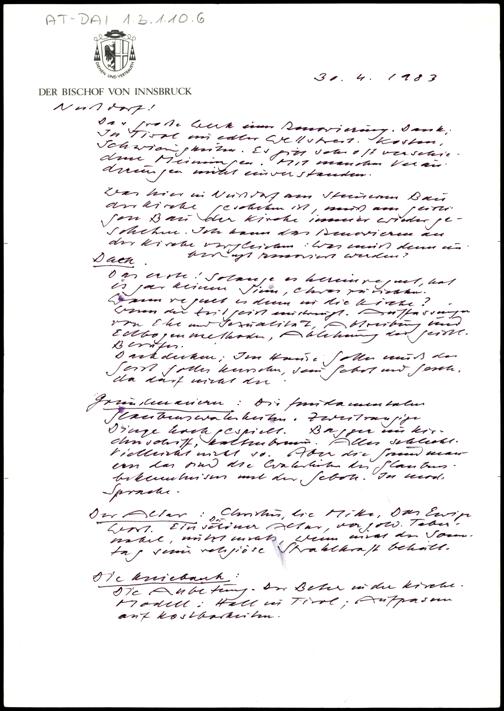 AT-DAI 1.3.1.10.6
DIENEN UND VERTRAUEN
DER BISCHOF VON INNSBRUCK
30. 4. 1983
Nußdorf!
Das große Werk einer Renovierung. Dank.
In Tirol ein edler Wettstreit. Kosten,
Schwierigkeiten. Es gibt sehr oft verschie-
dene Meinungen. Mit manchen Verän-
derungen nicht einverstanden.
Was hier in Nußdorf am steinernen Bau
der Kirche geschehen ist, muß am geisti-
gen Bau der Kirche immer wieder ge-
schehen. Ich kann das Renovieren an
der Kirche vergleichen: Was muß denn
renoviert werden?
Dach.
Das erste: Solange es hereinregnet, hat
es gar keinen Sinn,
Wann regnet es denn in die Kirche?
Wenn der Zeitgeist eindringt. Auffassungen
von Ehe und Sexualität, Abtreibung und
Ablehnung der geistl.
Berufe.
Dachdecken: Im Hause Gottes muß der
Geist Gottes herrschen, sein Gebot und
da darf nicht der
Grundmauern: Die fundamentalen
Glaubenswahrheiten. Zweitrangige
Dinge hochgespielt. Bagger im Kir-
Alles schlecht.
Vielleicht nicht so. Aber die Grundmau-
ern das sind die Wahrheiten des Glaubens-
bekenntnisses und der Gebote. In mod.
Sprache.
Der Altar: Christus, die Mitte, Das Ewige
Wort. Ein schöner Altar, ein gold. Taber-
nakel, nützt nichts, wenn nicht der Sonn-
tag seine religiöse Strahlkraft behält.
Die Kniebank:
Die Anbetung. Der Beter in der Kirche.
Modell: Hall in Tirol; Aufpassen
auf Kostbarkeiten.